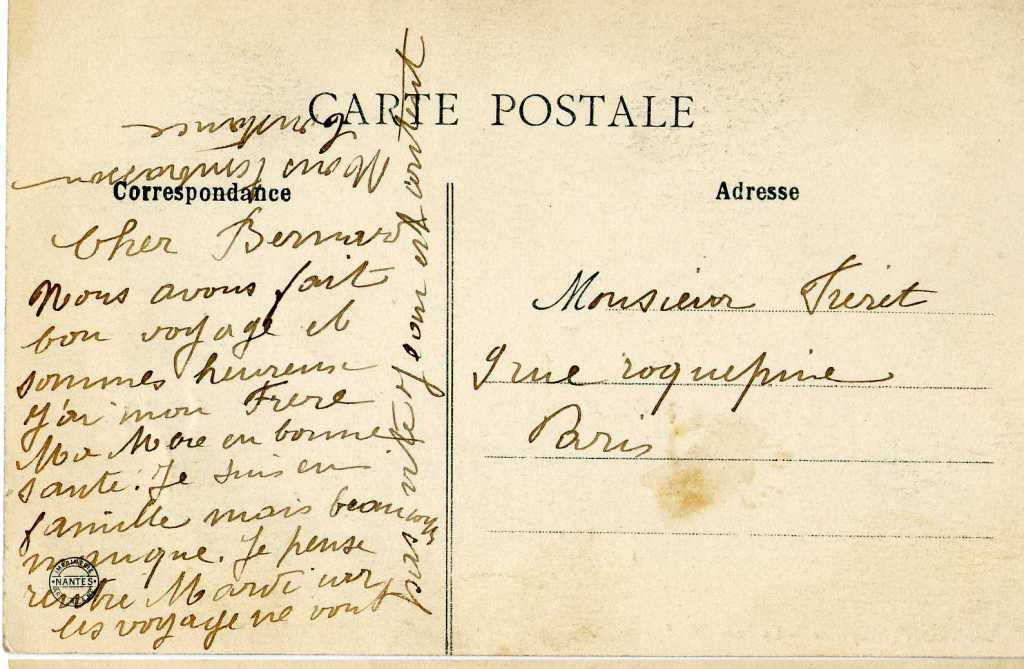 CARTE POSTALE
Correspondance
Adresse
Cher Bernard
Nous avons fait
bon voyage et
sommes heureuse
J'ai mon Frere
Ma Mere en bonne
santé. Je suis en
famille mais beaucoup
manque. Je pense
rentre Mardi
les voyage ne vont
pas vite Jean est content
Nous t'embrasson
Constance
Monsieur Freret
9 rue roquepine
Paris
IMPRIMERIE
NANTES